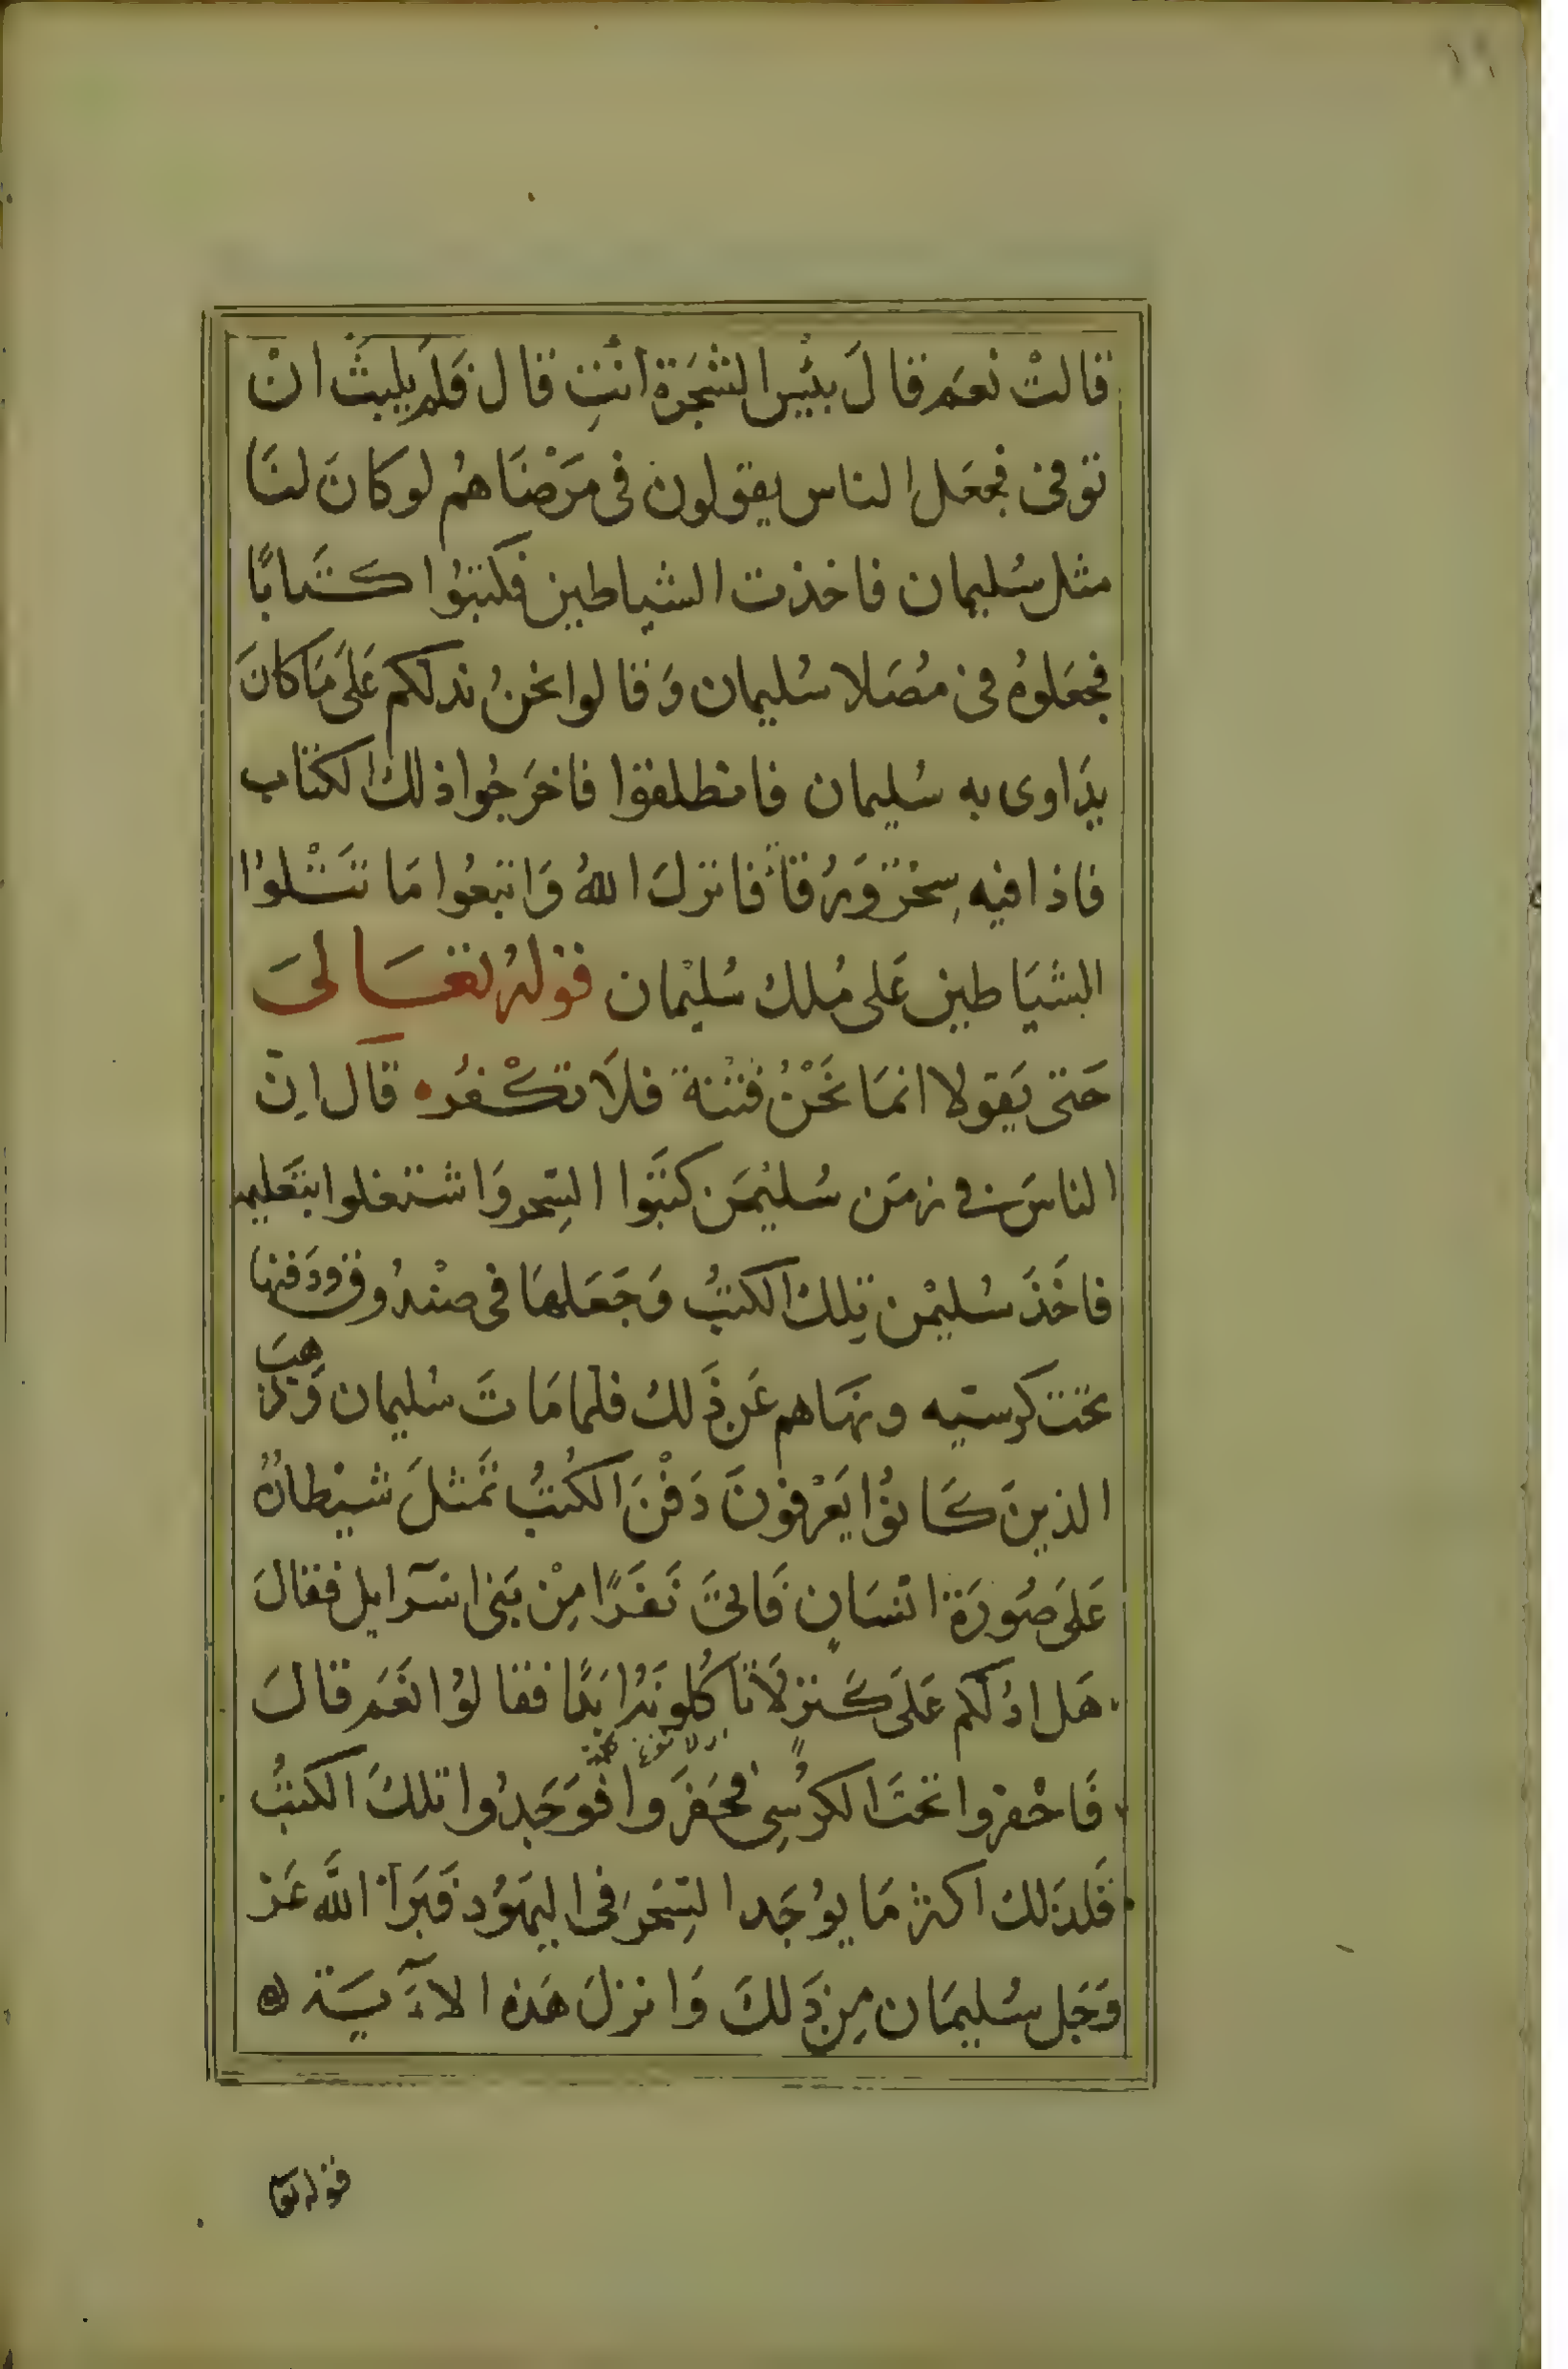 قالتْ نعَم قالَ بئسَ الشجَرَة انتِ قال فَلَم يلبثْ انْ
توفى فجعَل الناس يقولون فى مَرَضْنَاهُم لو كانَ لنَا
مثل سُليمان فاخذت الشياطين فكتبُوا كتَابًا
فجعَلوهُ فى مُصَلا سُليمان وَقالوا نحنُ ندلكم عَلىَ مَا كانَ
يدَاوى به سُليمان فانطلقوا فاخرَجُوا ذلك الكتاب
فاذا فيه سِحْرٌ وَرُقاً فانزلَ اللهُ وَاتبعُوا مَا تَتْلوُا
الشيَاطين عَلى مُلك سُليْمان قولهُ تعَالىَ
حَتى يَقولا انمَا نَحْنُ فتْنة فلاَ تكْفُره قال انّ
الناسَ فى زمَن سُليْمَن كتَبوا السِحر وَاشتغلوا بتَعليم
فاخَذَ سُليمْن تِلك الكتبُ وَجَعَلهَا فى صنْدُوق ودَفنها
تحت كرسيّه ونهَاهم عَن ذَلك فلما مَاتَ سُليمان وَذهبَ
الذينَ كَانُوا يَعْرفونَ دَفْنَ الكُتبُ تَمثلَ شيْطانٌ
عَلىَ صُورَة انْسَانٍ فَاتىَ نَفَرًا مِنْ بَنى اسْرآيل فقالَ
هَل ادُلكم عَلَى كَنزٍ لاَ تاكُلونَهُ ابَدًا فقالوُا نَعَم قالَ
فَاحْفروا تحتَ الكرْسِى فحَفَروا فوَجَدُوا تلكَ الكتبُ
فَلذَلك اكثر مَا يوُجَد السِّحْرَ فى اليهَوُد فَبَرأ اللَّه عَز
وَجَل سُليمَان مِن ذَلكَ وَانزلَ هَذه الاَءَيَة
قوله تعا